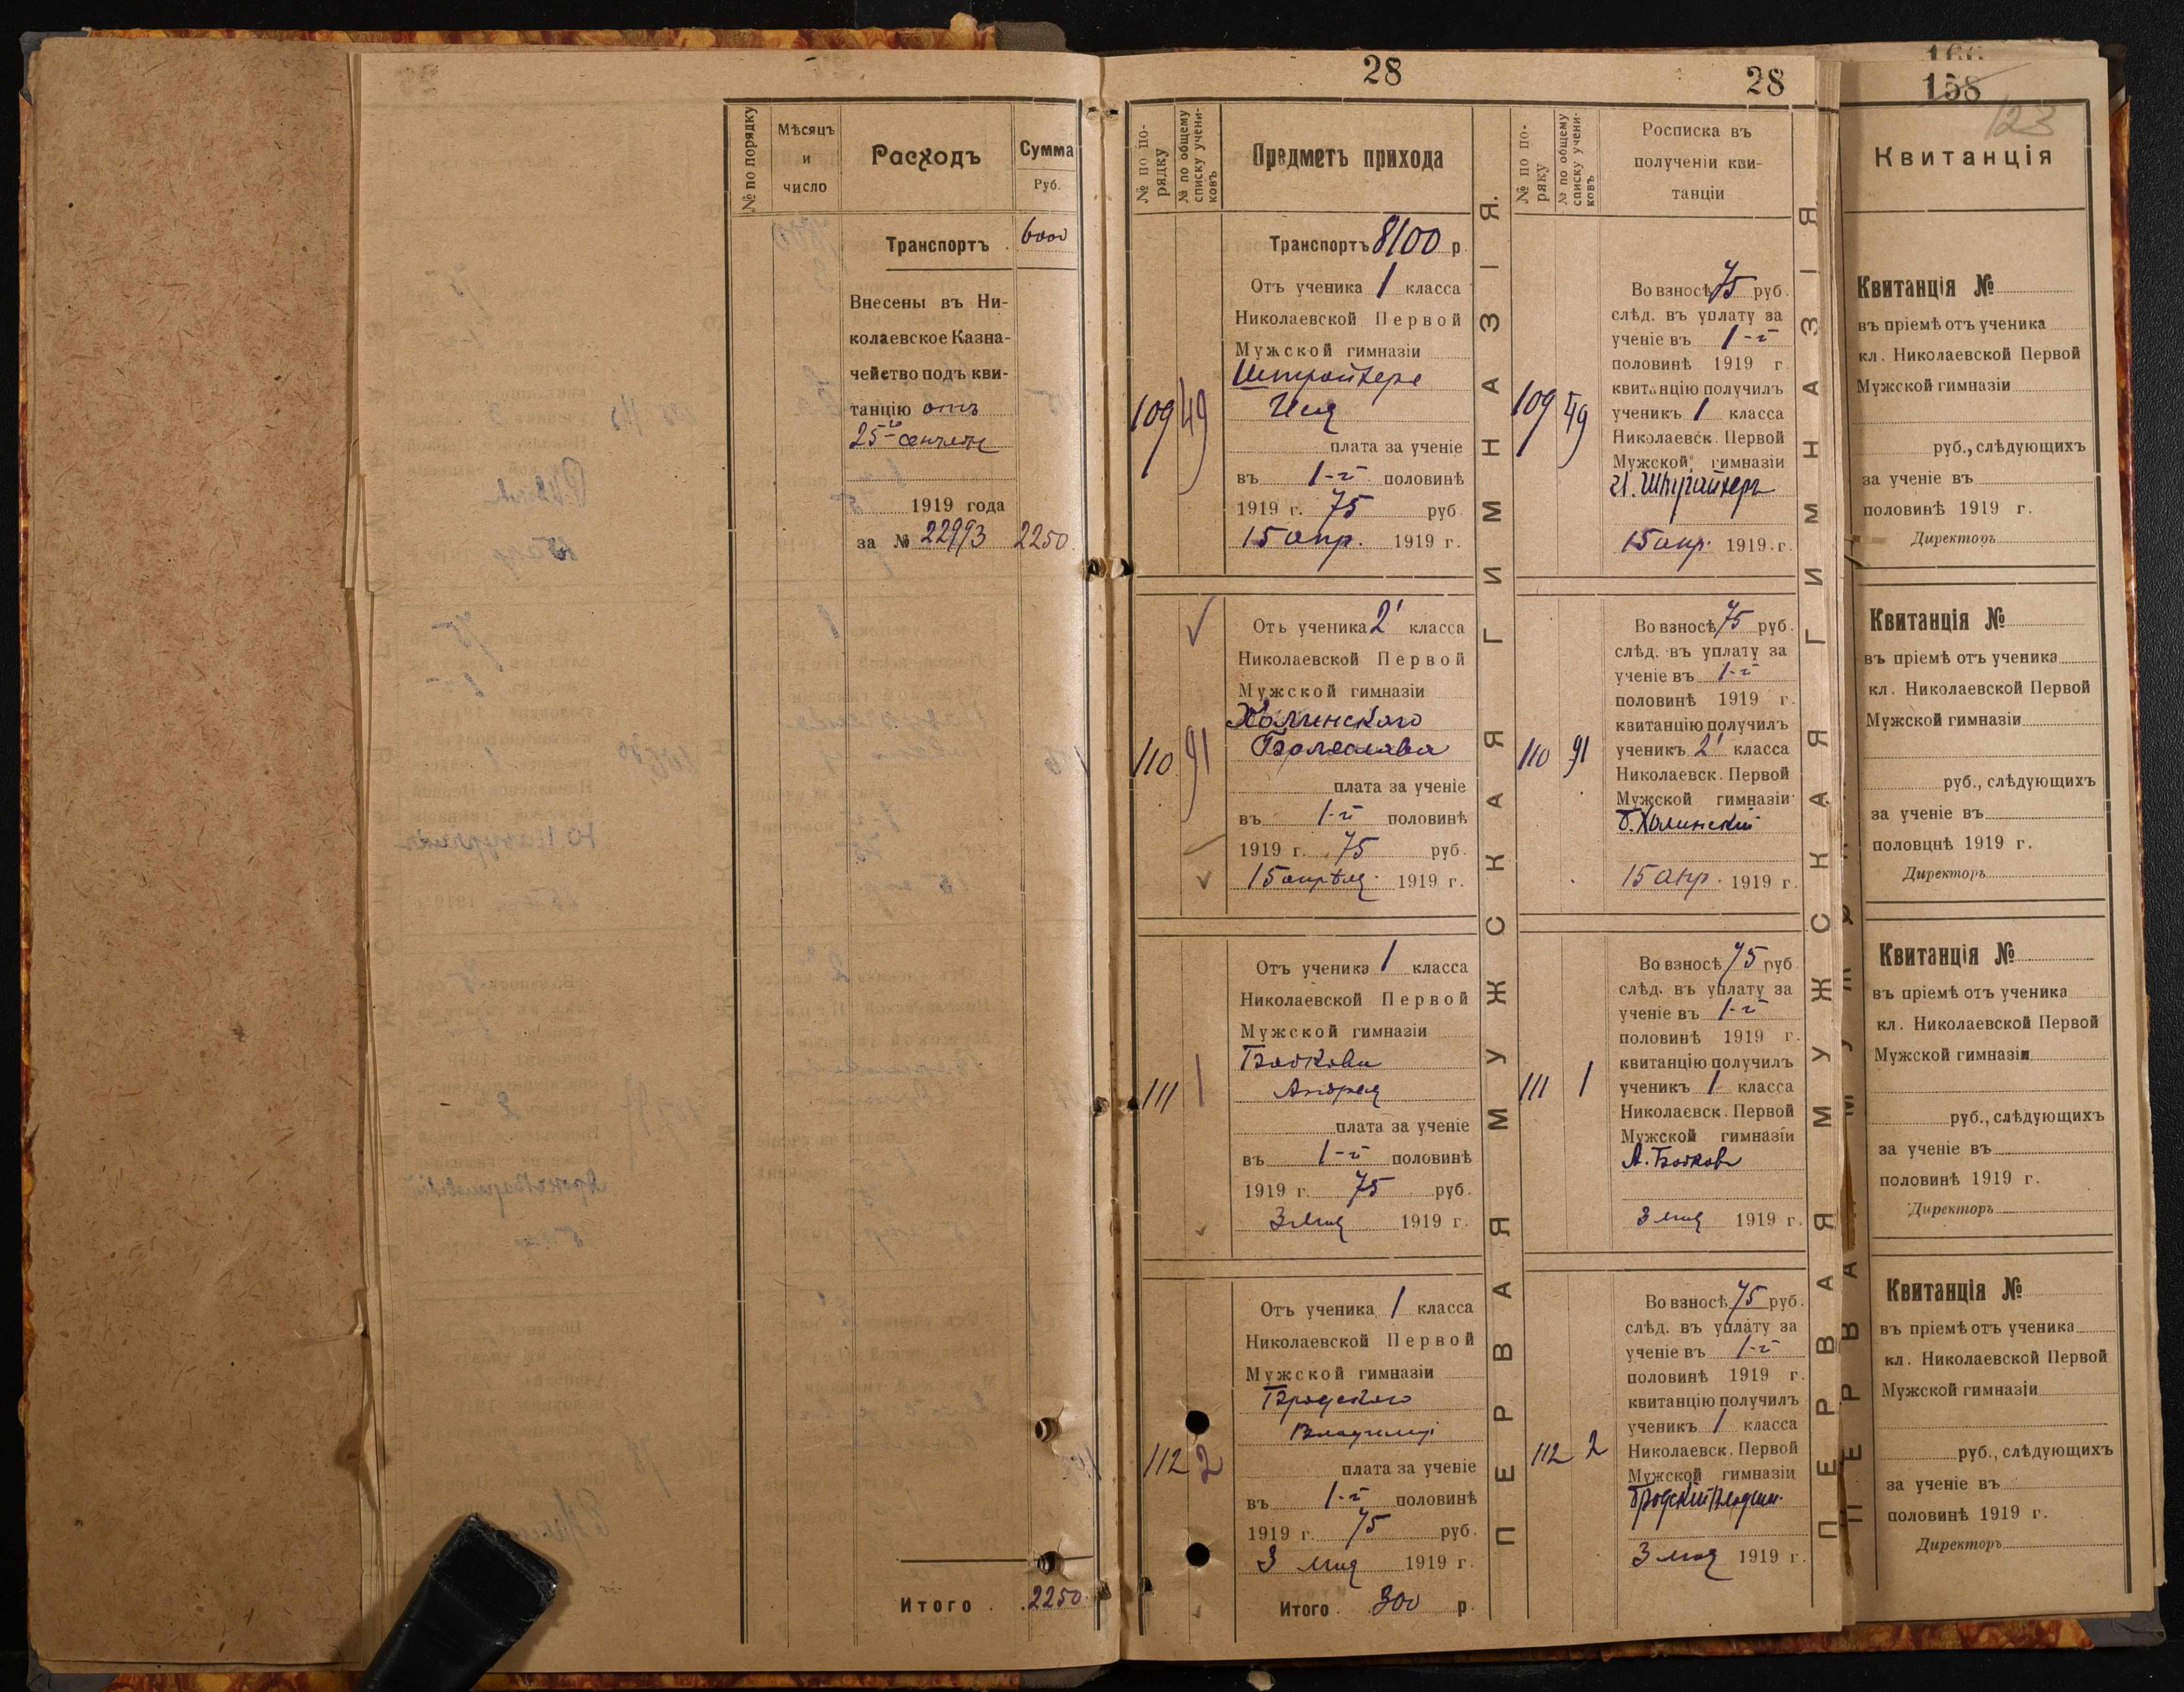 № по порядку
Мѣсяцъ
и
число
Расходъ
Сумма
Руб.
Транспортъ . 6000
Внесены въ Ни-
колаевское Казна-
чейство подъ кви-
танцію отъ
25го
1919 года
за № 22993 2250
Итого . 2250
28
№ по по-
рядку
№ по общему
списку учени-
ковъ
Предметъ прихода
Транспортъ 8100 р
109 49
Отъ ученика 1 класса
Николаевской Первой
Мужской гимназіи
Штрайхера
плата за ученіе
въ 1-й половинѣ
1919 г. 75 руб
15 апр. 1919 г.
110 91
Отъ ученика 2' класса
Николаевской Первой
Мужской гимназіи
Холинскаго
Болеслава
плата за ученіе
въ 1-й половинѣ
1919 г. 75 руб.
15 апрѣля 1919 г.
111 1
Отъ ученика 1 класса
Николаевской Первой
Мужской гимназіи
Бойкова
Андрея
плата за ученіе
въ 1-й половинѣ
1919 г. 75 руб.
3 мая 1919 г.
112 2
Отъ ученика 1 класса
Николаевской Первой
Мужской гимназіи
Бродскаго
плата за ученіе
въ 1-й половинѣ
1919 г. 75 руб.
3 мая 1919 г.
Итого . 300 р.
ПЕРВАЯ МУЖСКАЯ ГИМНАЗІЯ.
28
№ по по-
ряку
№ по общему
списку учени-
ковъ
Росписка въ
полученіи кви-
танціи
109 49
Во взносѣ 75 руб.
слѣд. въ уплату за
ученіе въ 1-й
половинѣ 1919 г.
квитанцію получилъ
ученикъ 1 класса
Николаевск. Первой
Мужской гимназіи
И. Штрайхеръ
15 апр. 1919 г.
110 91
Во взносѣ 75 руб.
слѣд. въ уплату за
ученіе въ 1-й
половинѣ 1919 г.
квитанцію получилъ
ученикъ 2' класса
Николаевск. Первой
Мужской гимназіи
Б. Холинскій
15 апр. 1919 г.
111 1
Во взносѣ 75 руб
слѣд. въ уплату за
ученіе въ 1-й
половинѣ 1919 г.
квитанцію получилъ
ученикъ 1 класса
Николаевск. Первой
Мужской гимназіи
А. Бойковъ
3 мая 1919 г.
112 2
Во взносѣ 75 руб.
слѣд. въ уплату за
ученіе въ 1-й
половинѣ 1919 г.
квитанцію получилъ
ученикъ 1 класса
Николаевск. Первой
Мужской гимназіи
Бродскій
3 мая 1919 г.
ПЕРВАЯ МУЖСКАЯ ГИМНАЗІЯ.
166
158
123
Квитанція
Квитанція №
въ пріемѣ отъ ученика
кл. Николаевской Первой
Мужской гимназіи
руб., слѣдующихъ
за ученіе въ
половинѣ 1919 г.
Директоръ
Квитанція №
въ пріемѣ отъ ученика
кл. Николаевской Первой
Мужской гимназіи
руб., слѣдующихъ
за ученіе въ
половцнѣ 1919 г.
Директоръ
Квитанція №
въ пріемѣ отъ ученика
кл. Николаевской Первой
Мужской гимназіи
руб., слѣдующихъ
за ученіе въ
половинѣ 1919 г.
Директоръ
Квитанція №
въ пріемѣ отъ ученика
кл. Николаевской Первой
Мужской гимназіи
руб., слѣдующихъ
за ученіе въ
половинѣ 1919 г.
Директоръ